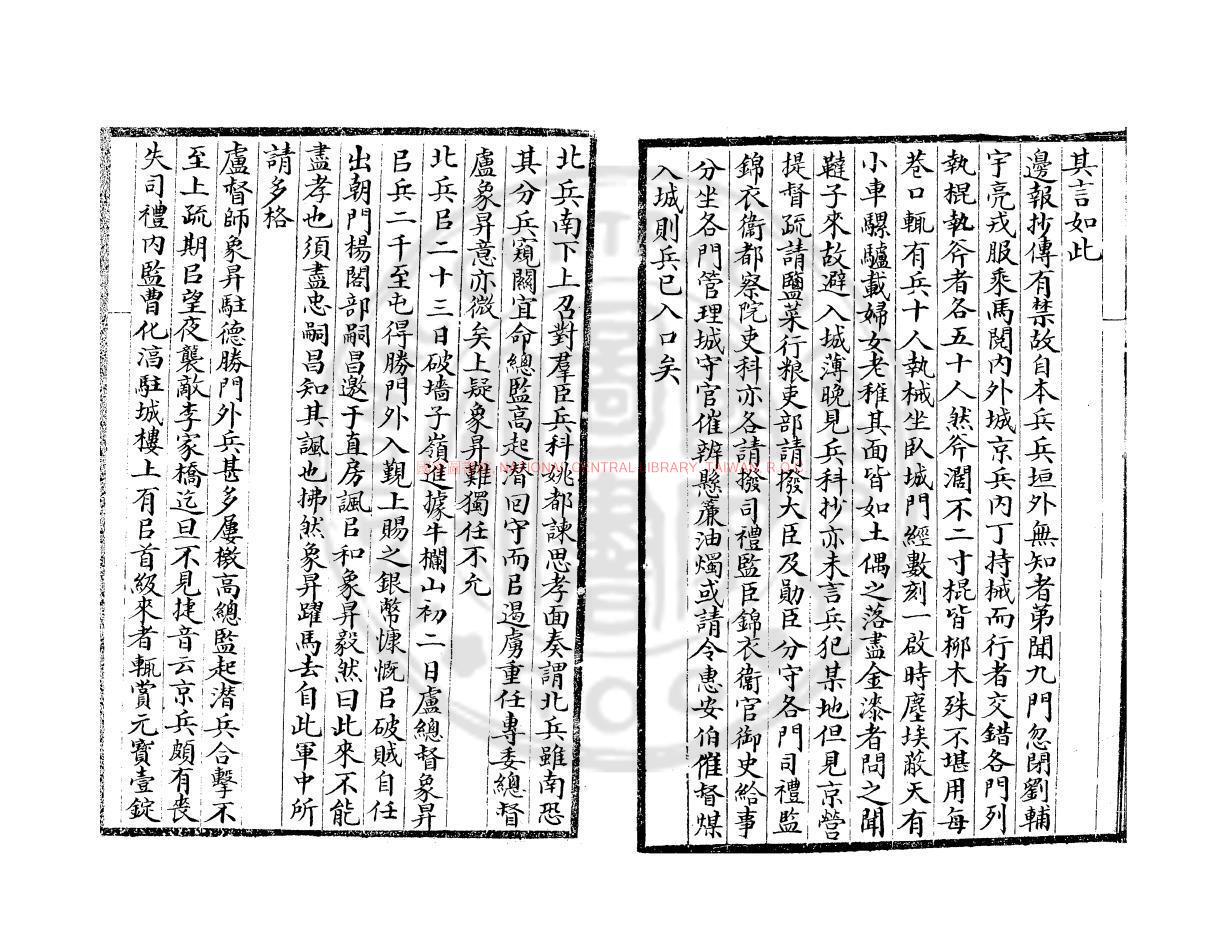 其言如此
邊報抄傳有禁故自本兵兵垣外無知者第聞九門忽閉劉輔
宇亮戎服乘馬閱內外城京兵內丁持械而行者交錯各門列
執棍執斧者各五十人然斧濶不二寸棍皆柳木殊不堪用每
巷口輒有兵十人執械坐臥城門經數刻一啟時塵埃蔽天有
小車騾驢載婦女老稚其面皆如土偶之落盡金漆者問之聞
韃子來故避入城薄晚見兵科抄亦未言兵犯某地但見京營
提督疏請鹽菜行粮吏部請撥大臣及勛臣分守各門司禮監
錦衣衞都察院吏科亦各請撥司禮監臣錦衣衞官御史給事
分坐各門管理城守官催辨懸簾油燭或請令惠安伯催督煤
入城則兵已入口矣
北兵南下上召對羣臣兵科姚都諫思孝面奏謂北兵雖南恐
其分兵窺闕宜命總監高起潛回守而以遏虜重任專委總督
盧象昇意亦微矣上疑象昇難獨任不允
北兵以二十三日破墻子嶺進據牛欄山初二日盧總督象昇
以兵二千至屯得勝門外入覲上賜之銀幣慷慨以破賊自任
出朝門楊閣部嗣昌邀于直房諷以和象昇毅然曰此來不能
盡孝也須盡忠嗣昌知其諷也拂然象昇躍馬去自此軍中所
請多格
盧督師象昇駐德勝門外兵甚多屢檄高總監起潛兵合擊不
至上疏期以望夜襲敵李家橋迄旦不見捷音云京兵頗有喪
失司禮內監曹化淳駐城樓上有以首級來者輒賞元寶壹錠
國家圖書館 NATIONAL CENTRAL LIBRARY, TAIWAN, R.O.C